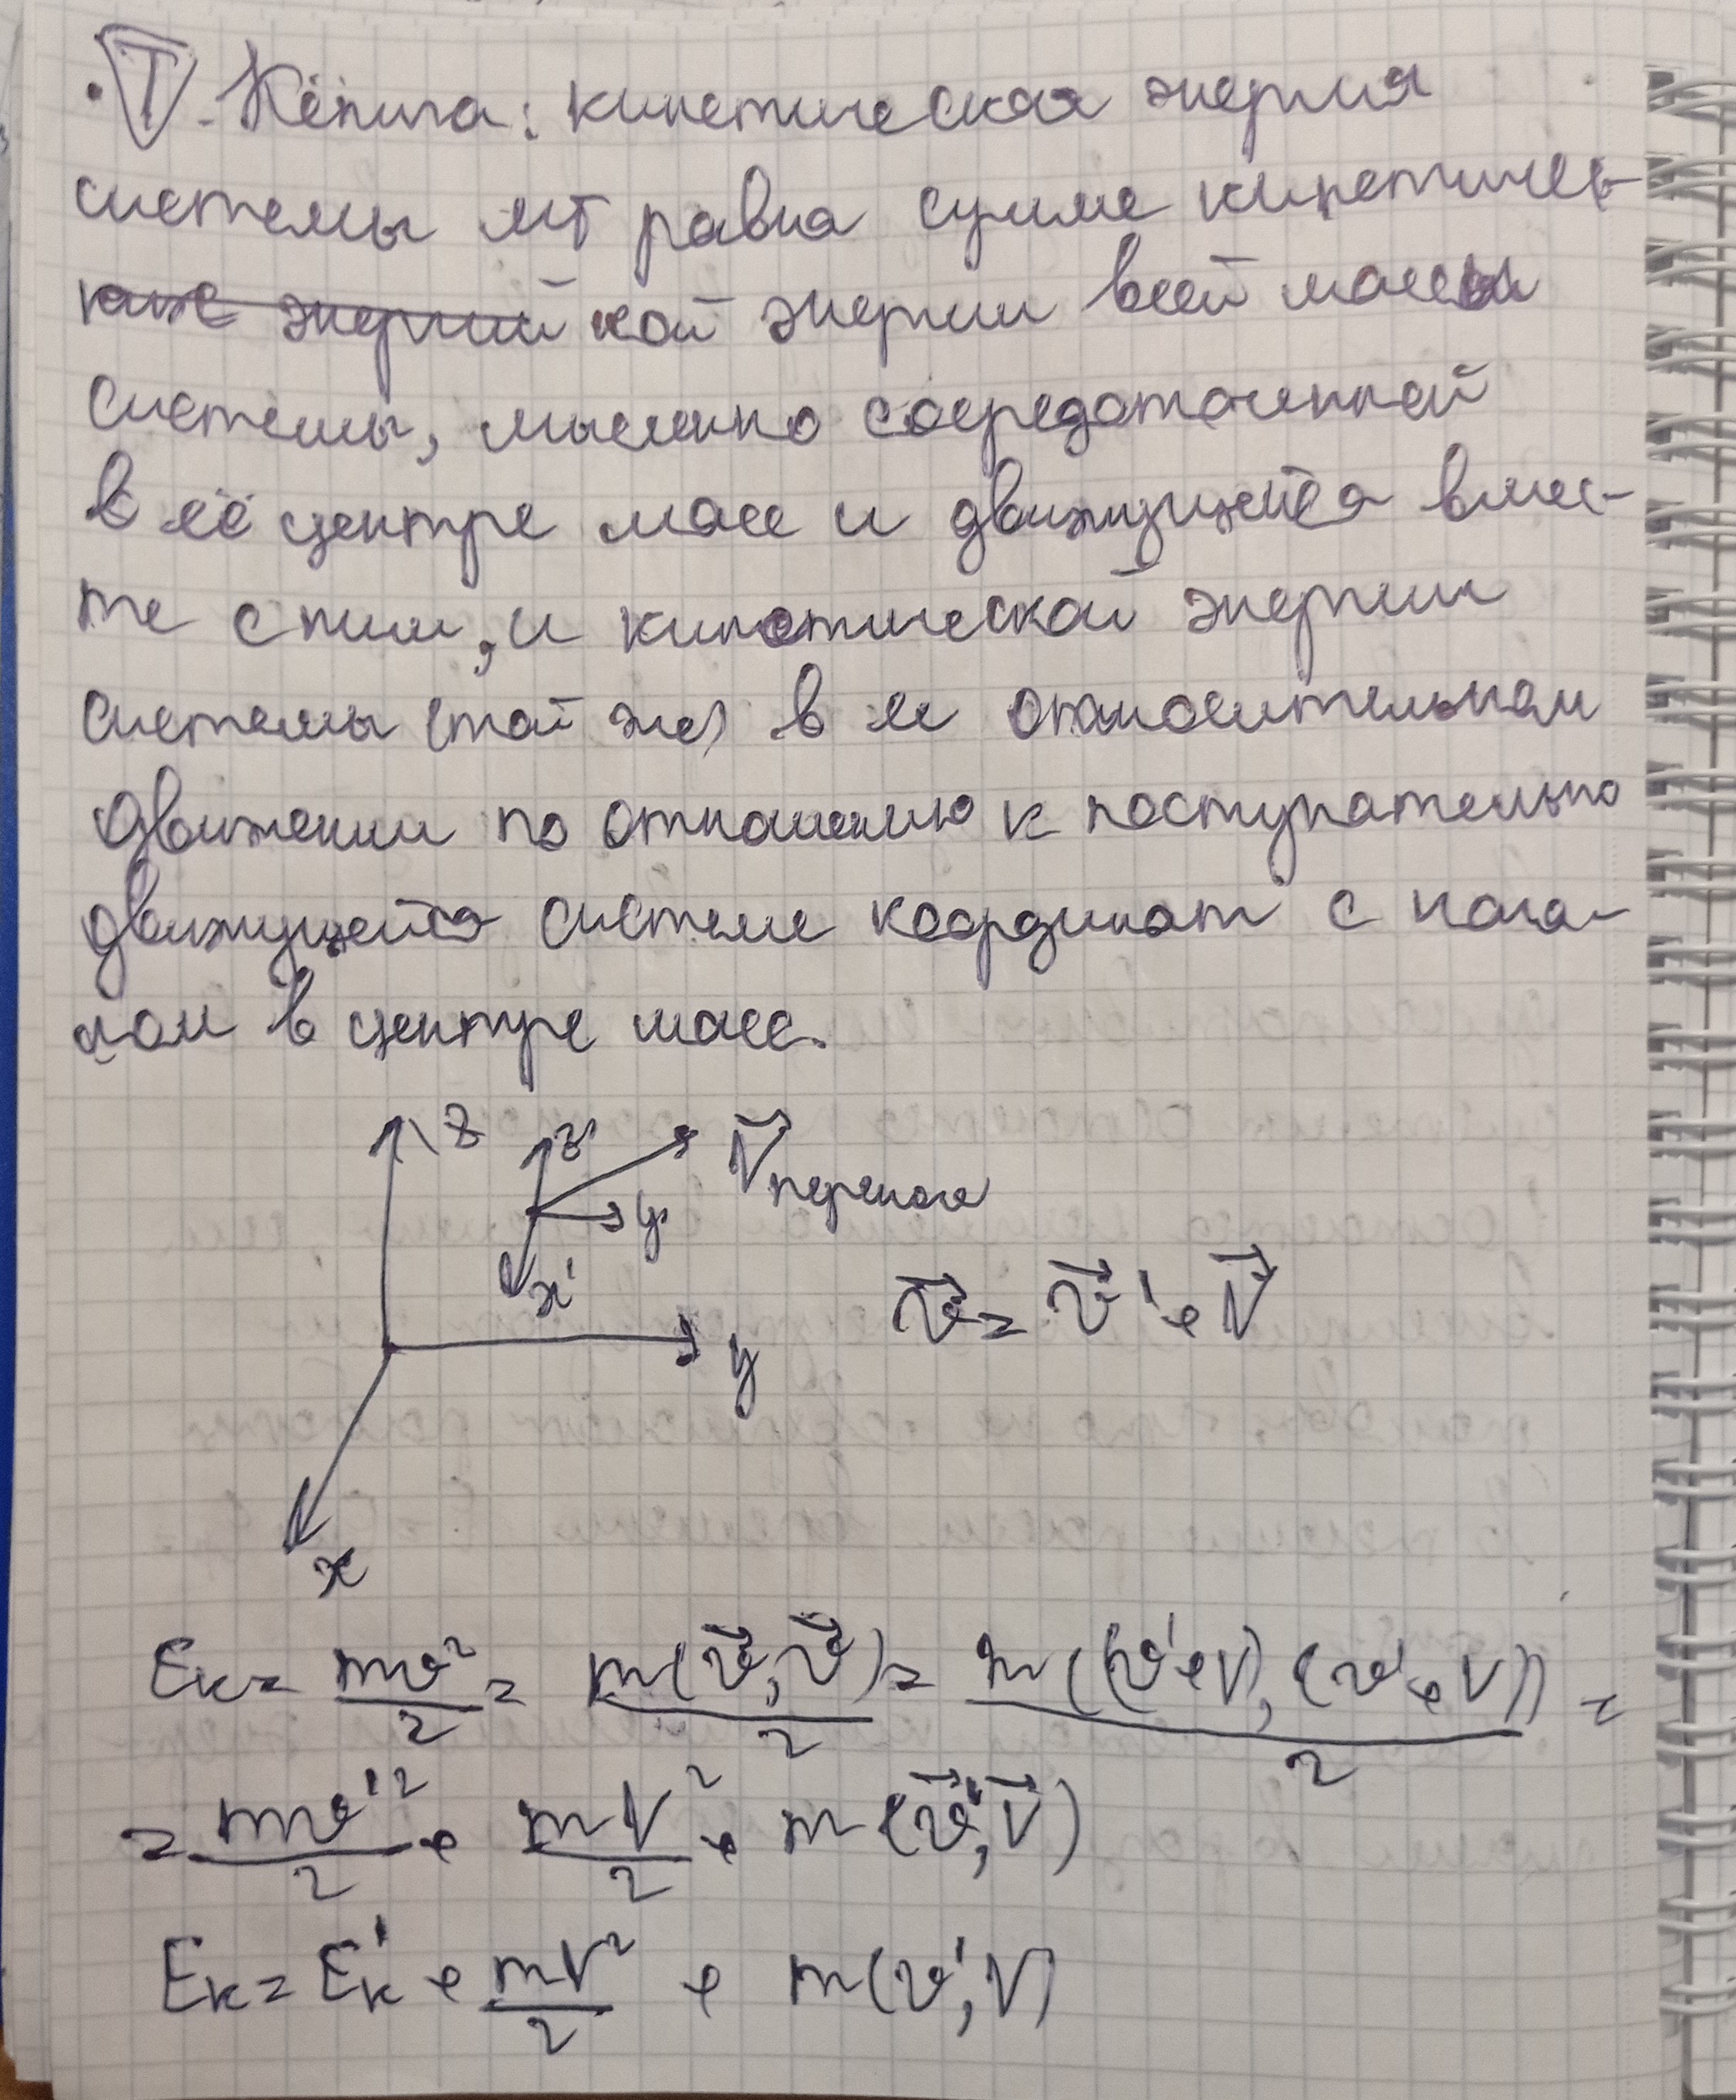 · T. Кёнига: кинетическая энергия
системы МТ равна сумме кинетичес-
ких энергий кой энергии всей массы
системы, мысленно сосредоточенной
в её центре масс и движущейся вмес-
те с ним, и кинетической энергии
системы (той же) в ее относительном
движении по отношению к поступательно
движущейся системе координат с нача-
лом в центре масс.
z z' V⃗переноса
y'
x'
v⃗ = v⃗' + V⃗
y
x
Eк = mv²/2 = m(v⃗, v⃗)/2 = m((v'+V), (v'+V))/2 =
= mv'²/2 + mV²/2 + m(v⃗', V⃗)
Eк = E'к + mV²/2 + m(v', V)